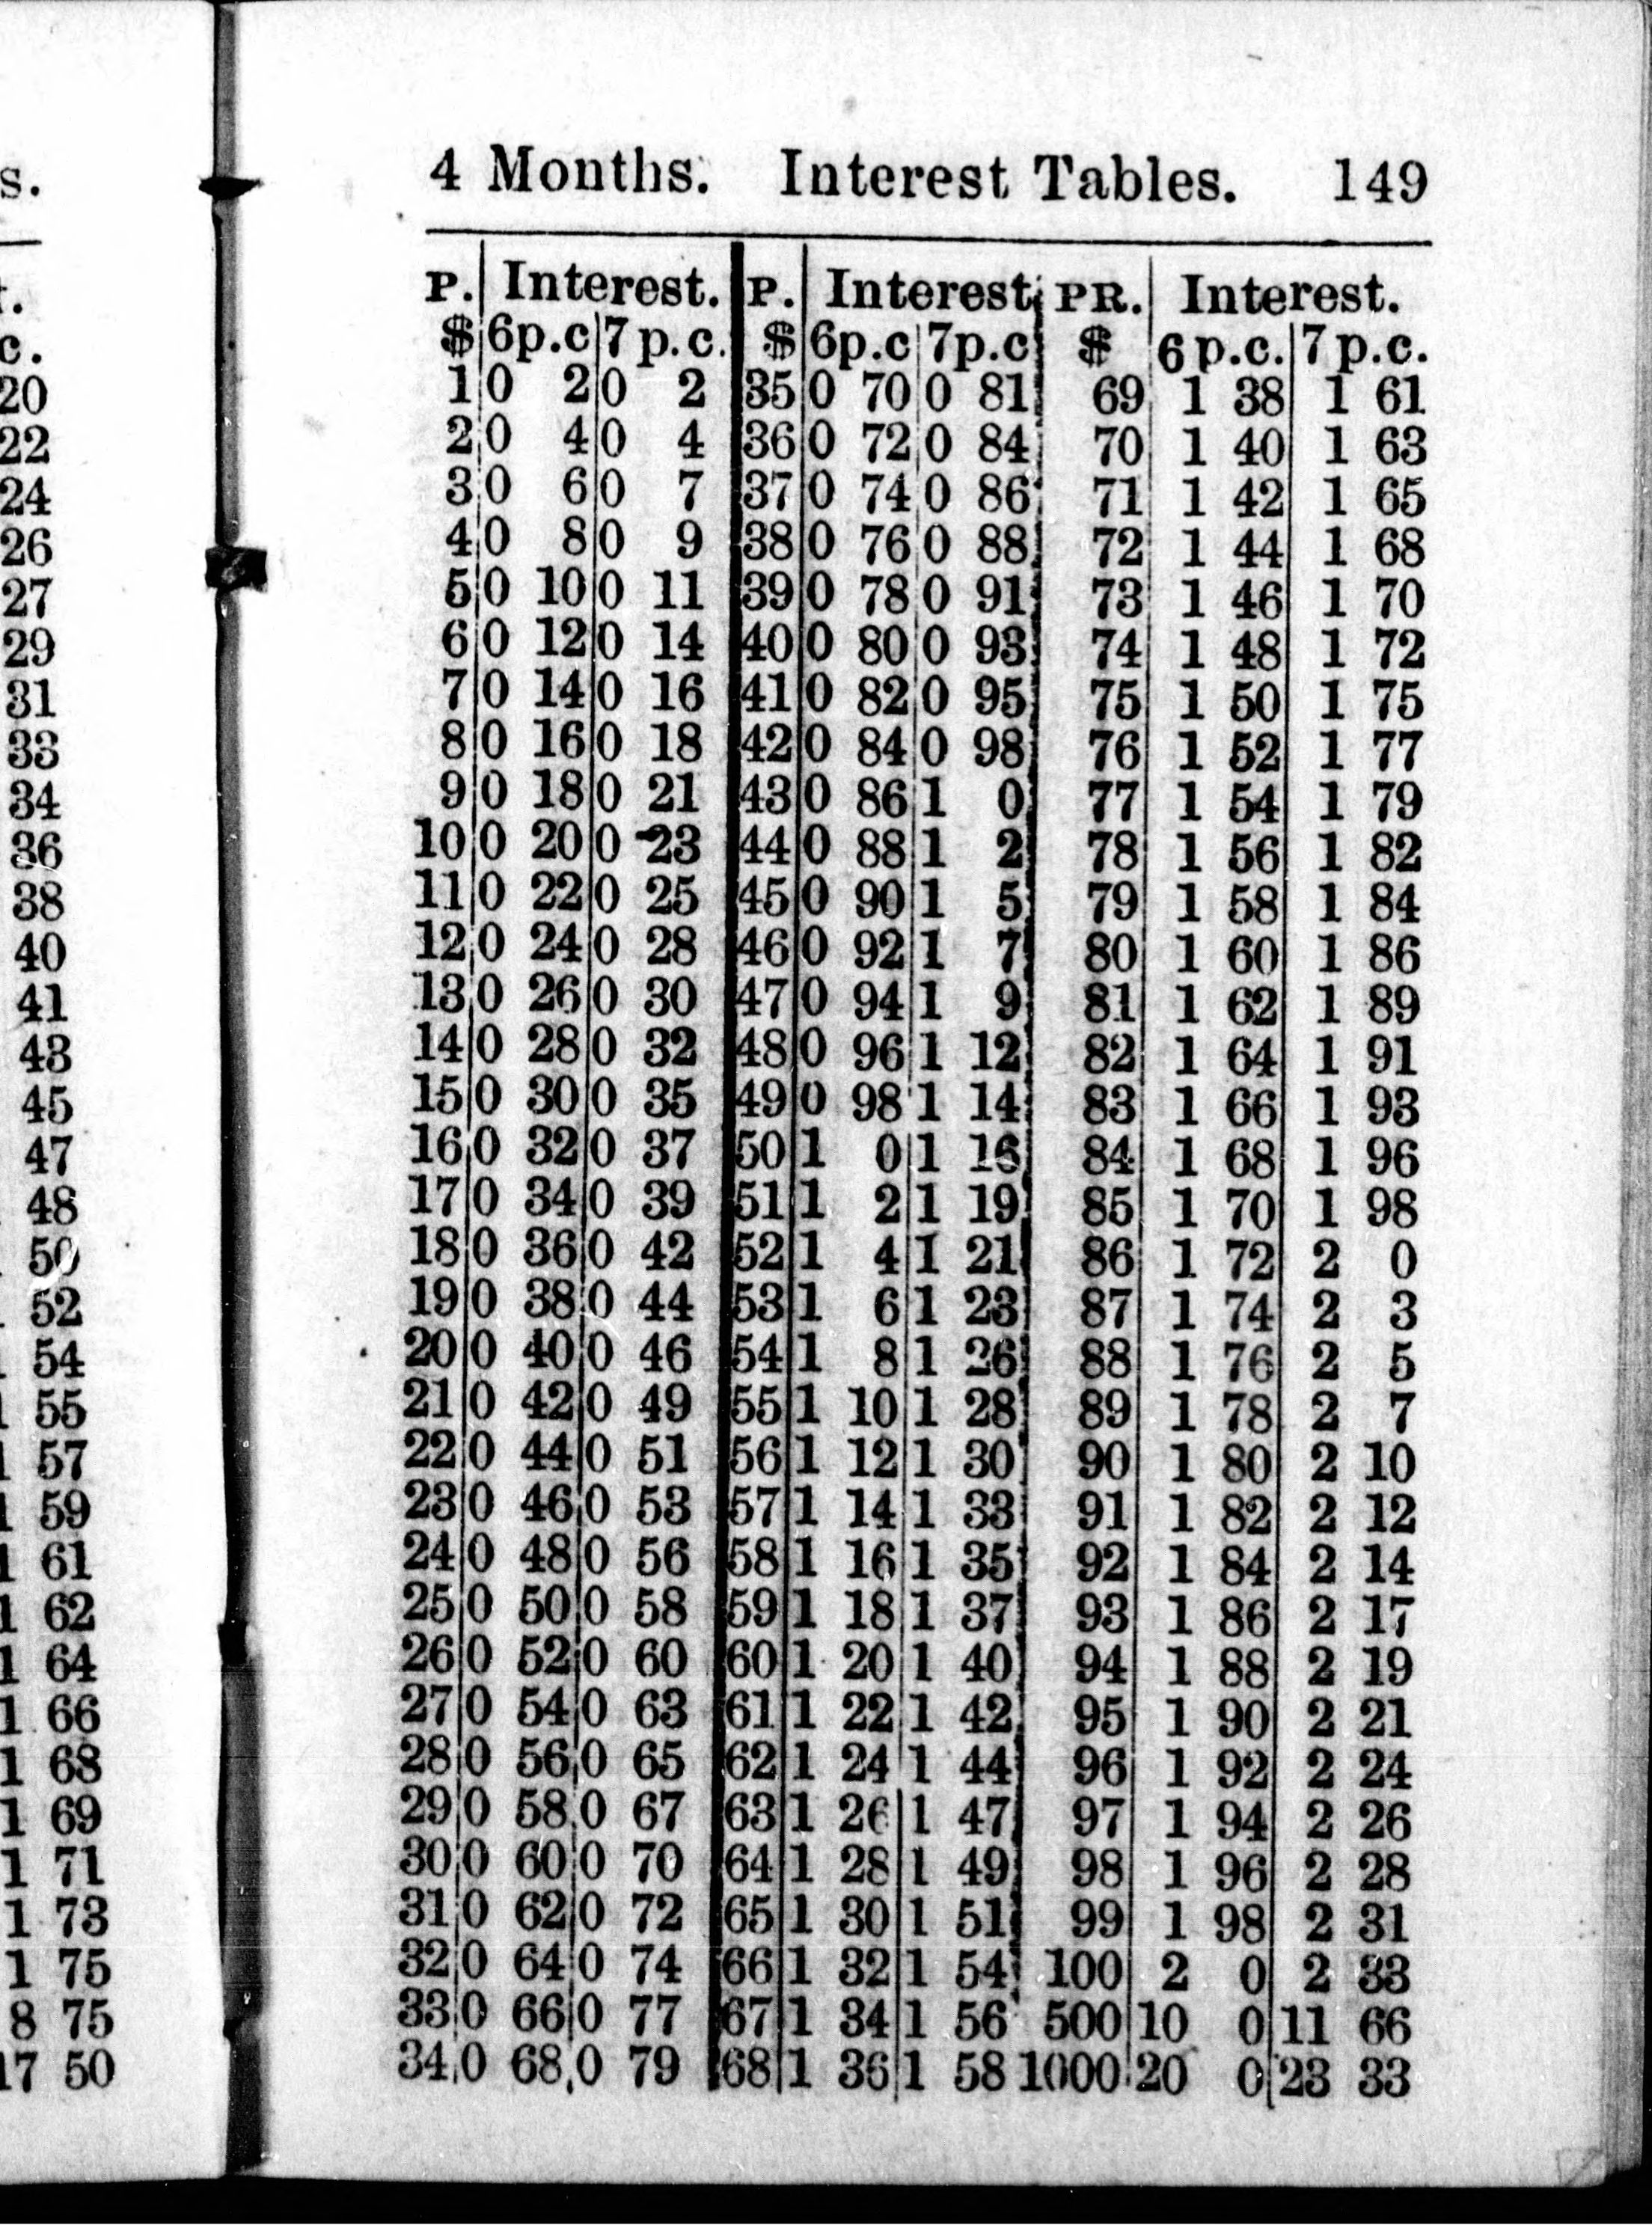 s.
r.
c.
20
22
24
26
27
29
31
33
34
36
38
40
41
43
45
47
48
50
52
54
55
57
59
1 61
1 62
1 64
1 66
1 68
1 69
1 71
1 73
1 75
8 75
17 50
4 Months. Interest Tables. 149
P. Interest. P. Interest PR. Interest.
$ 6p.c 7 p.c. $ 6p.c 7p.c $ 6 p.c. 7 p.c.
1 0 2 0 2 35 0 70 0 81 69 1 38 1 61
2 0 4 0 4 36 0 72 0 84 70 1 40 1 63
3 0 6 0 7 37 0 74 0 86 71 1 42 1 65
4 0 8 0 9 38 0 76 0 88 72 1 44 1 68
5 0 10 0 11 39 0 78 0 91 73 1 46 1 70
6 0 12 0 14 40 0 80 0 93 74 1 48 1 72
7 0 14 0 16 41 0 82 0 95 75 1 50 1 75
8 0 16 0 18 42 0 84 0 98 76 1 52 1 77
9 0 18 0 21 43 0 86 1 0 77 1 54 1 79
10 0 20 0 23 44 0 88 1 2 78 1 56 1 82
11 0 22 0 25 45 0 90 1 5 79 1 58 1 84
12 0 24 0 28 46 0 92 1 7 80 1 60 1 86
13 0 26 0 30 47 0 94 1 9 81 1 62 1 89
14 0 28 0 32 48 0 96 1 12 82 1 64 1 91
15 0 30 0 35 49 0 98 1 14 83 1 66 1 93
16 0 32 0 37 50 1 0 1 16 84 1 68 1 96
17 0 34 0 39 51 1 2 1 19 85 1 70 1 98
18 0 36 0 42 52 1 4 1 21 86 1 72 2 0
19 0 38 0 44 53 1 6 1 23 87 1 74 2 3
20 0 40 0 46 54 1 8 1 26 88 1 76 2 5
21 0 42 0 49 55 1 10 1 28 89 1 78 2 7
22 0 44 0 51 56 1 12 1 30 90 1 80 2 10
23 0 46 0 53 57 1 14 1 33 91 1 82 2 12
24 0 48 0 56 58 1 16 1 35 92 1 84 2 14
25 0 50 0 58 59 1 18 1 37 93 1 86 2 17
26 0 52 0 60 60 1 20 1 40 94 1 88 2 19
27 0 54 0 63 61 1 22 1 42 95 1 90 2 21
28 0 56 0 65 62 1 24 1 44 96 1 92 2 24
29 0 58 0 67 63 1 26 1 47 97 1 94 2 26
30 0 60 0 70 64 1 28 1 49 98 1 96 2 28
31 0 62 0 72 65 1 30 1 51 99 1 98 2 31
32 0 64 0 74 66 1 32 1 54 100 2 0 2 33
33 0 66 0 77 67 1 34 1 56 500 10 0 11 66
34 0 68 0 79 68 1 36 1 58 1000 20 0 23 33